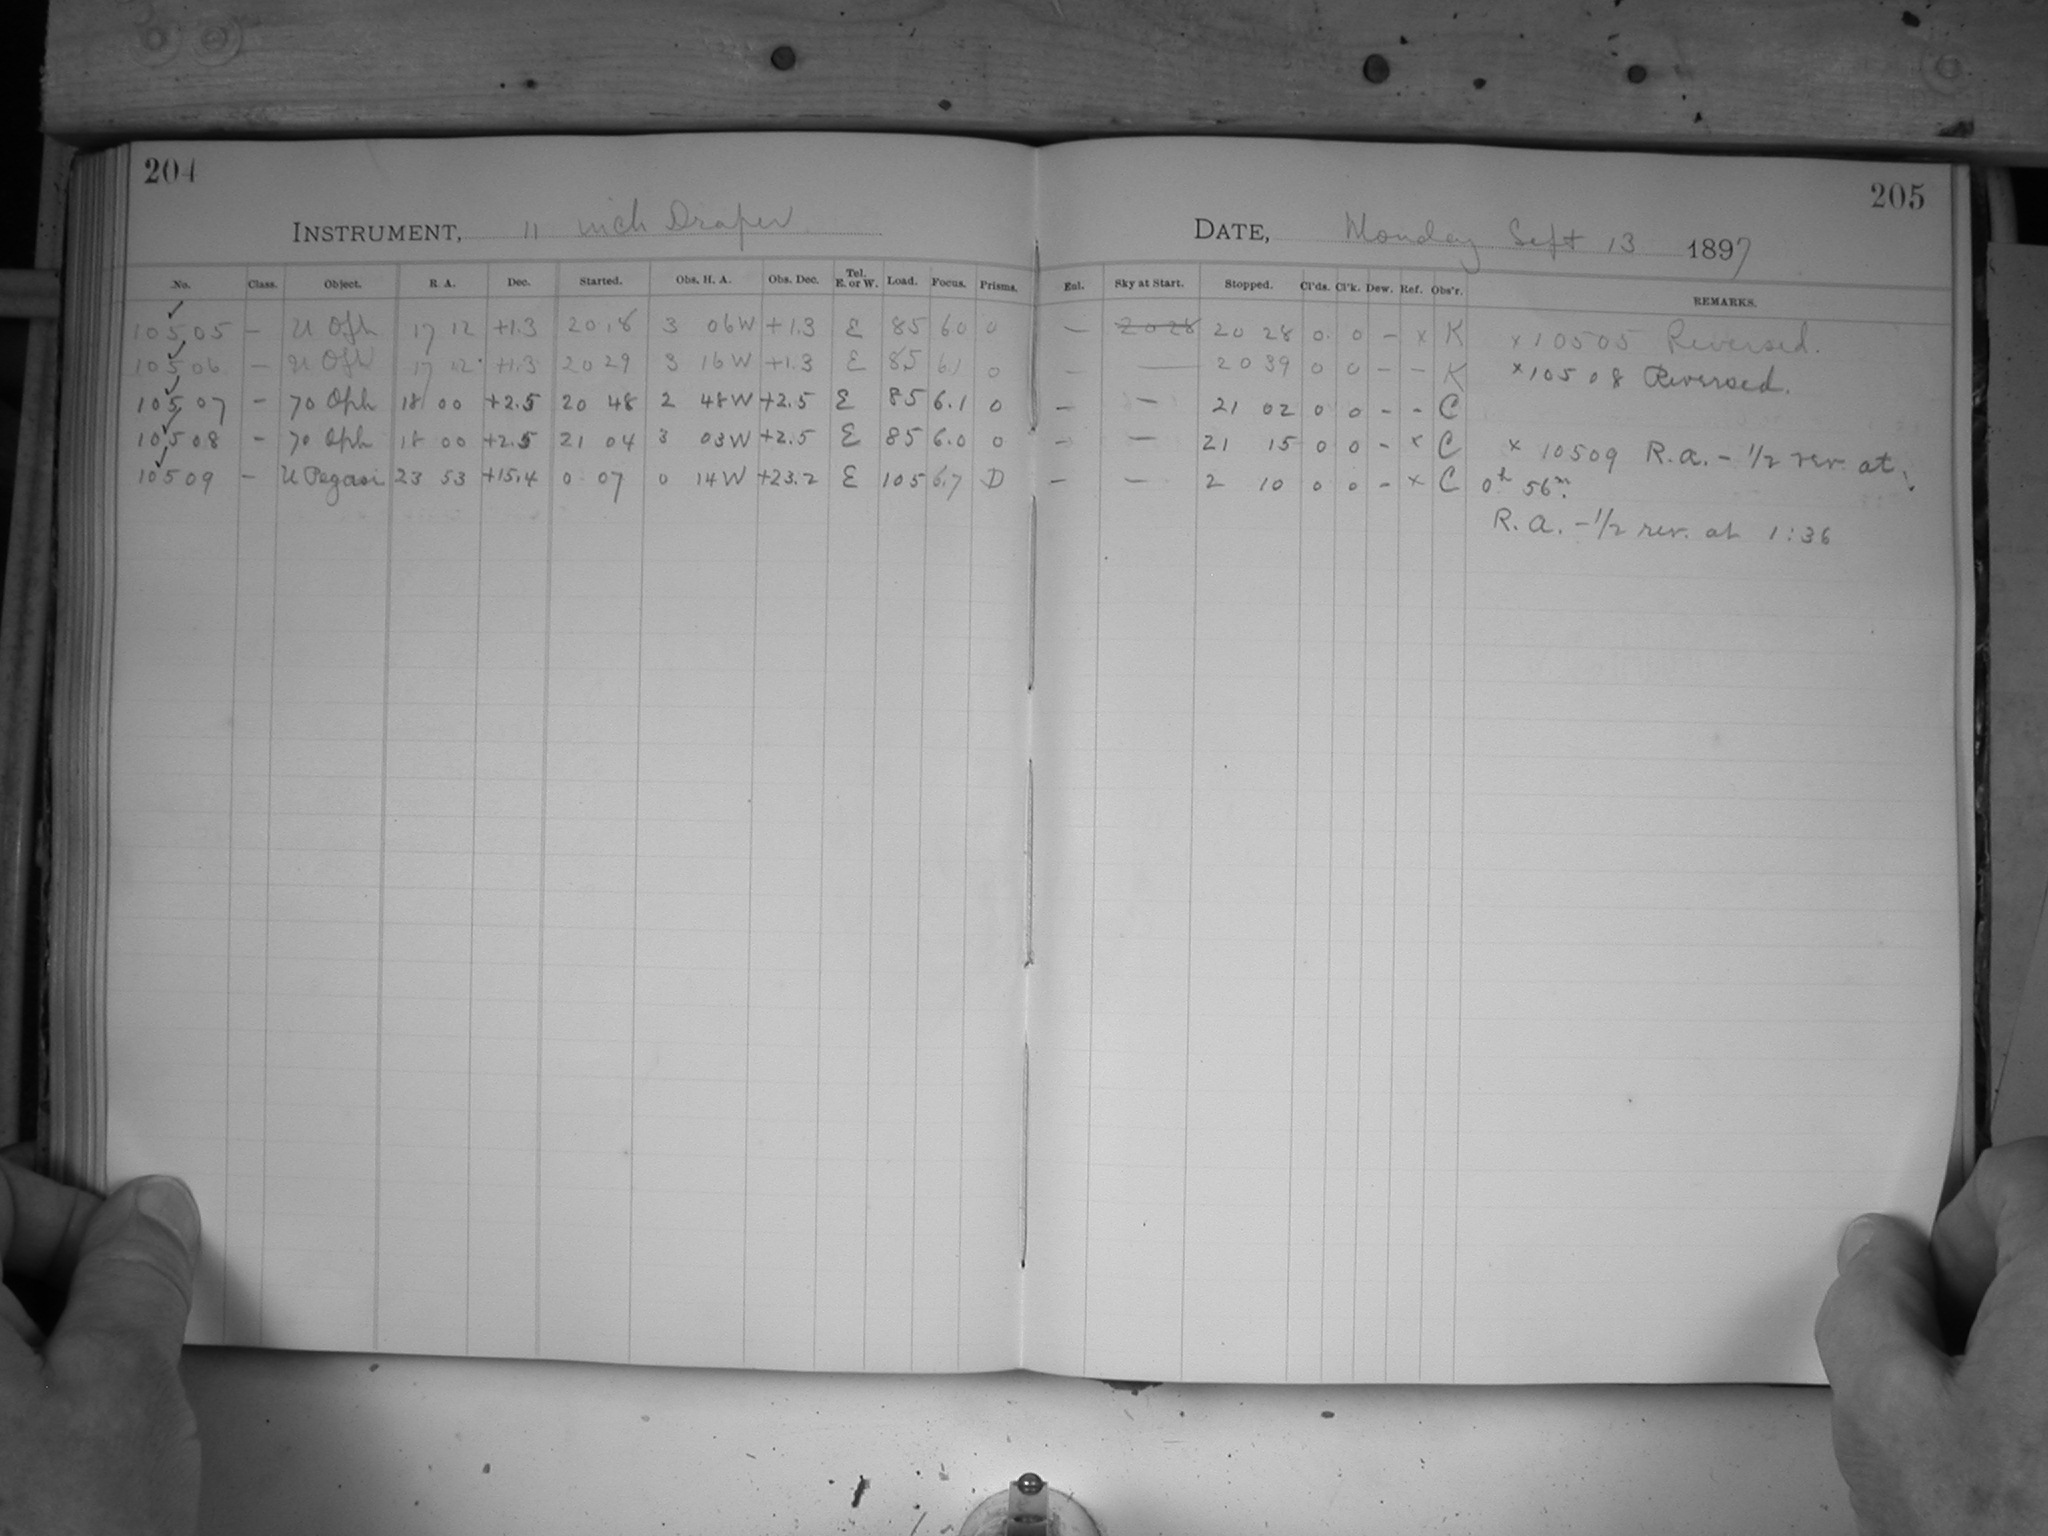 204
INSTRUMENT, 11 inch Draper
No. Class. Object. R. A. Dec. Started. Obs. H. A. Obs. Dec. Tel. E. or W. Load. Focus. Prisms.
10505 — U Oph 17 12 +1.3 20 18 3 06W +1.3 E 85 60 0
10506 — U Oph 17 12 +1.3 20 29 3 16W +1.3 E 85 6.1 0
10507 — 70 Oph 18 00 +2.5 20 48 2 48W +2.5 E 85 6.1 0
10508 — 70 Oph 18 00 +2.5 21 04 3 03W +2.5 E 85 6.0 0
10509 — U Pegasi 23 53 +15.4 0 07 0 14W +23.2 E 105 6.7 D
205
DATE, Monday Sept 13 1897
Enl. Sky at Start. Stopped. Cl'ds. Cl'k. Dew. Ref. Obs'r. REMARKS.
— 20 28 20 28 0 0 – x K x 10505 Reversed.
— — 20 39 0 0 – – K x 10508 Reversed.
— — 21 02 0 0 – – C
— — 21 15 0 0 – x C x 10509 R.a. – 1/2 rev. at
— — 2 10 0 0 – x C 0h 56m.
R.a. – 1/2 rev. at 1:36